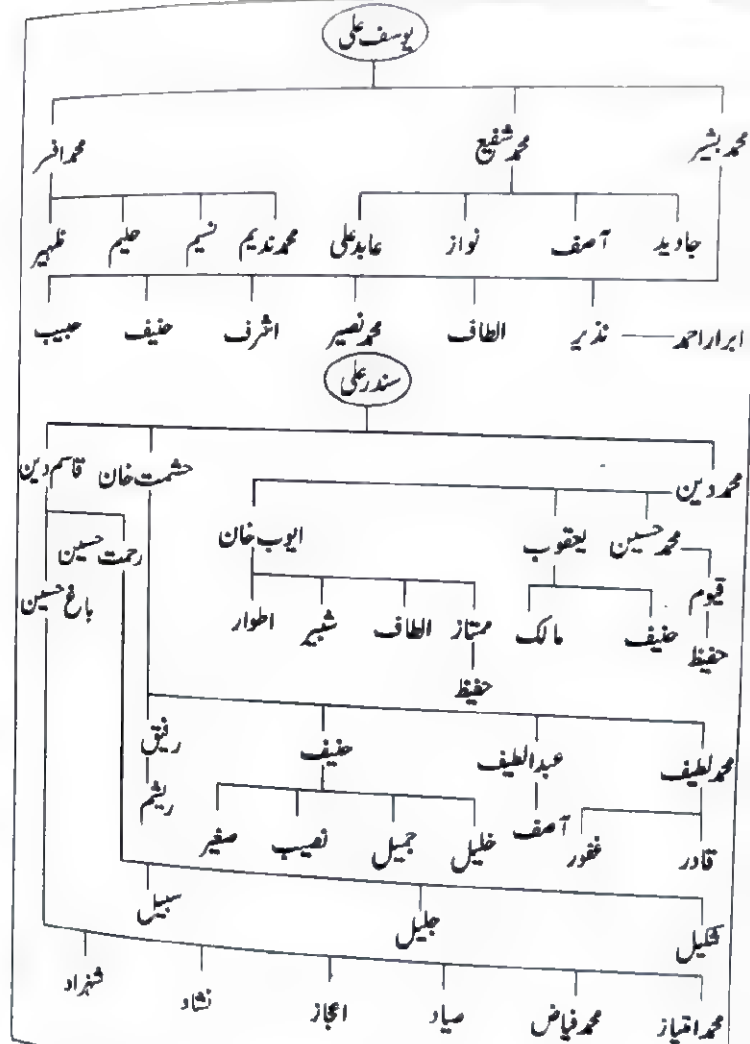 یوسف علی
محمد بشیر محمد شفیع محمد افسر
جاوید آصف نواز عابد علی محمد ندیم نسیم حلیم ظہیر
ابرار احمد نذیر الطاف محمد نصیر اشرف حنیف حبیب
سندر علی
محمد دین حشمت خان قاسم دین
محمد حسین یعقوب ایوب خان رحمت حسین
قیوم باغ حسین
حنیف مالک ممتاز الطاف شبیر اطوار
حفیظ حفیظ
محمد لطیف عبدالطیف حنیف رفیق
ریشم
قادر غفور آصف خلیل جمیل نصیب صغیر
شکیل جلیل سبیل
محمد امتیاز محمد فیاض صیاد اعجاز نشاد شہزاد